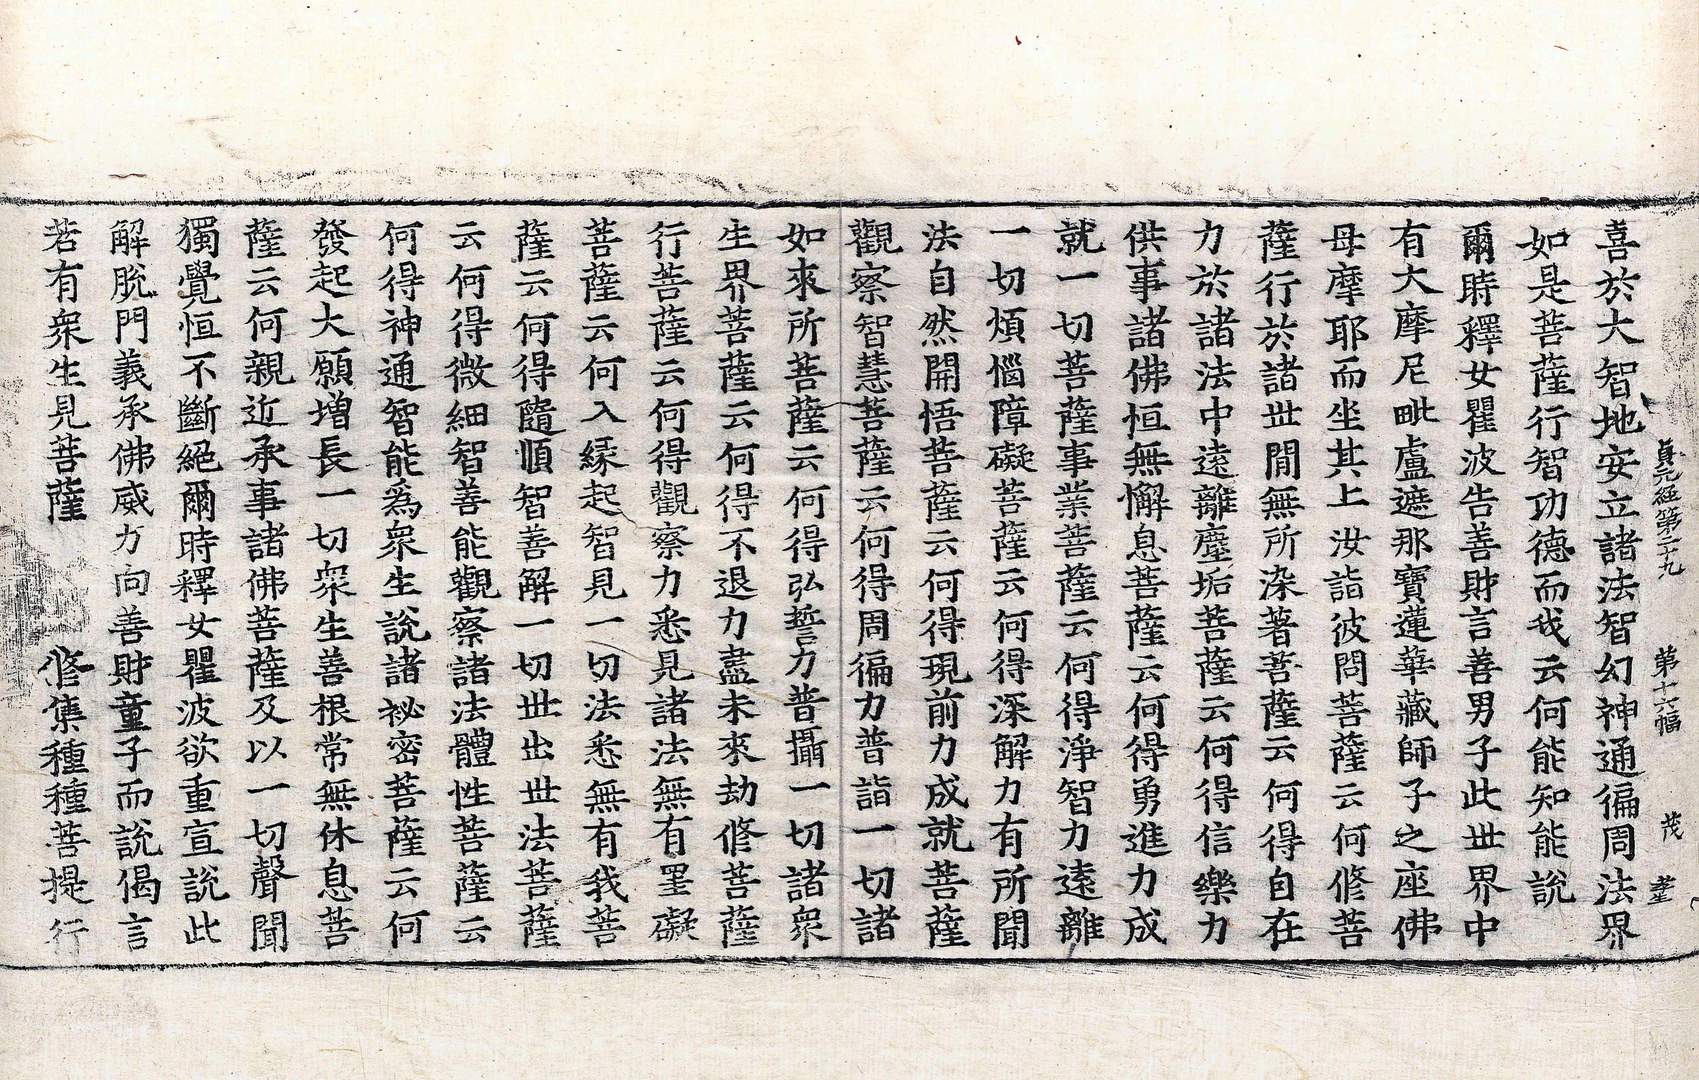 貞元經第二十九 第十六幅 茂
喜於大智地安立諸法智幻神通徧周法界
如是菩薩行智功德而我云何能知能說
爾時釋女瞿波告善財言善男子此世界中
有大摩尼毗盧遮那寶蓮華藏師子之座佛
母摩耶而坐其上汝詣彼問菩薩云何修菩
薩行於諸世間無所染著菩薩云何得自在
力於諸法中遠離塵垢菩薩云何得信樂力
供事諸佛恒無懈息菩薩云何得勇進力成
就一切菩薩事業菩薩云何得淨智力遠離
一切煩惱障礙菩薩云何得深解力有所聞
法自然開悟菩薩云何得現前力成就菩薩
觀察智慧菩薩云何得周徧力普詣一切諸
如來所菩薩云何得弘誓力普攝一切諸衆
生界菩薩云何得不退力盡未來劫修菩薩
行菩薩云何得觀察力悉見諸法無有罣礙
菩薩云何入緣起智見一切法悉無有我菩
薩云何得隨順智善解一切世出世法菩薩
云何得微細智善能觀察諸法體性菩薩云
何得神通智能爲衆生說諸祕密菩薩云何
發起大願增長一切衆生善根常無休息菩
薩云何親近承事諸佛菩薩及以一切聲聞
獨覺恒不斷絕爾時釋女瞿波欲重宣說此
解脫門義承佛威力向善財童子而說偈言
若有衆生見菩薩 修集種種菩提行